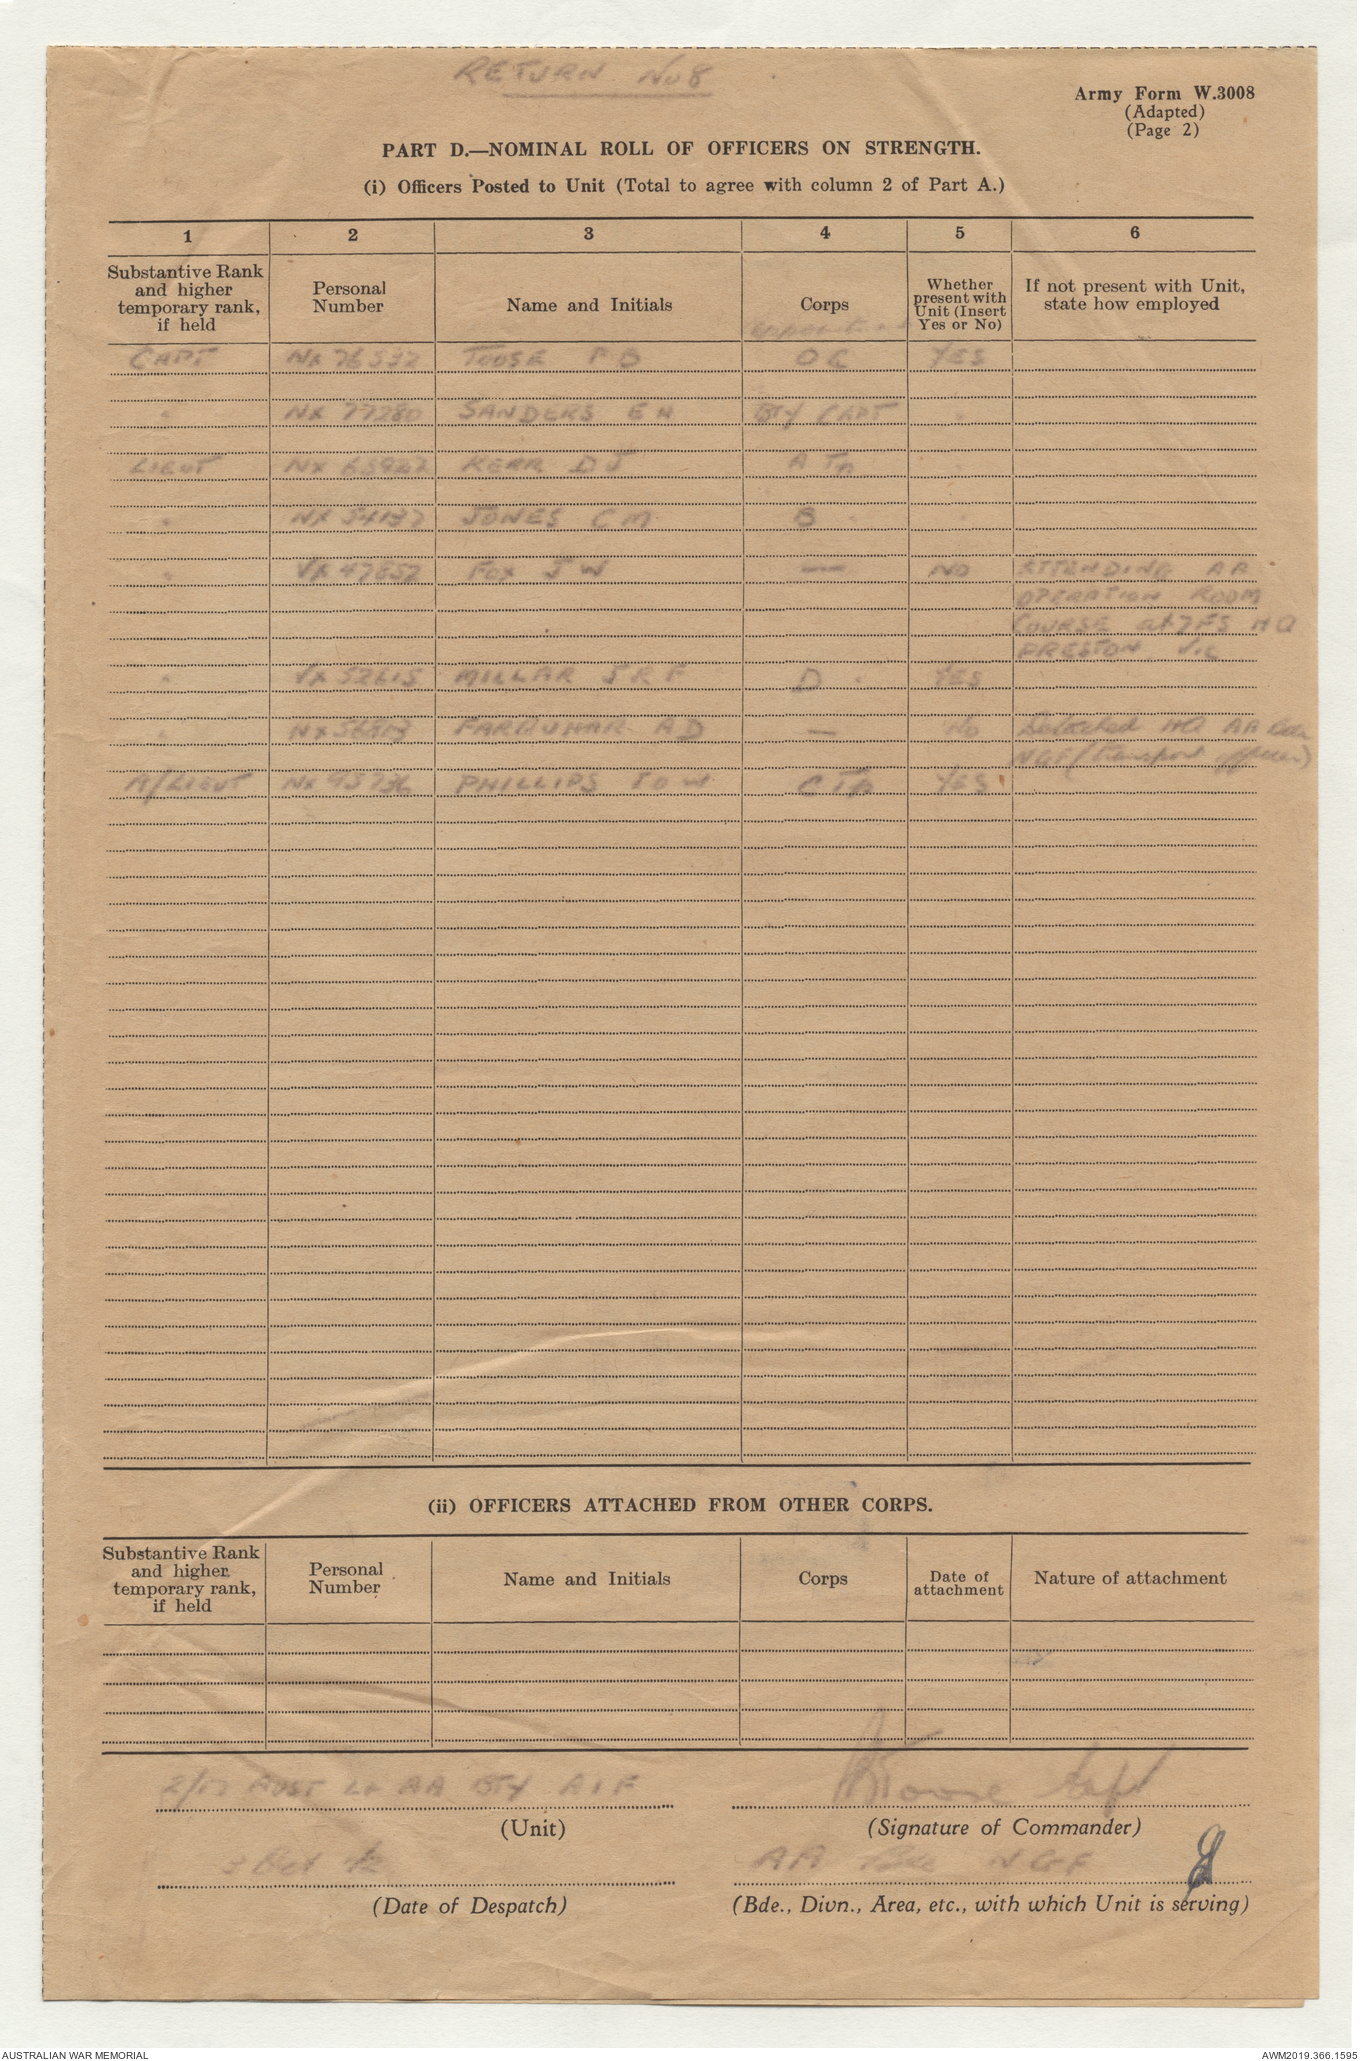 RETURN No 8
Army Form W.3008
(Adapted)
(Page 2)
PART D.—NOMINAL ROLL OF OFFICERS ON STRENGTH.
(i) Officers Posted to Unit (Total to agree with column 2 of Part A.)
1 2 3 4 5 6
Substantive Rank and higher temporary rank, if held
Personal Number
Name and Initials
Corps
Whether present with Unit (Insert Yes or No)
If not present with Unit, state how employed
CAPT NX 76532 TOOSE P B O C YES
" NX 77280 SANDERS E H BTY CAPT "
LIEUT KERR D J A Tp "
" JONES C M B " "
" VX 47657 FOX J W — NO ATTENDING AA
OPERATION ROOM
COURSE at 7 FS HQ
PRESTON Vic
" VX 52615 MILLAR J R F D " YES
" FARQUHAR A D — No Detached HQ AA Bde
NGF (Transport officer)
A/LIEUT NX 93736 PHILLIPS C Tp YES
(ii) OFFICERS ATTACHED FROM OTHER CORPS.
Substantive Rank and higher temporary rank, if held
Personal Number
Name and Initials
Corps
Date of attachment
Nature of attachment
2/17 AUST Lt AA BTY AIF
PToose Capt
(Unit)
(Signature of Commander)
3 Oct 42
AA Bde NGF
(Date of Despatch)
(Bde., Divn., Area, etc., with which Unit is serving)
AUSTRALIAN WAR MEMORIAL
AWM2019.366.1595